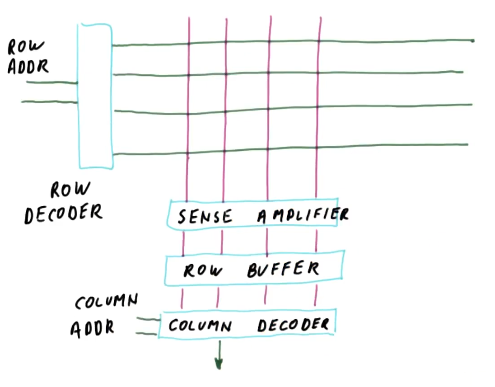 ROW
ADDR
ROW
DECODER
SENSE AMPLIFIER
ROW BUFFER
COLUMN
ADDR
COLUMN DECODER